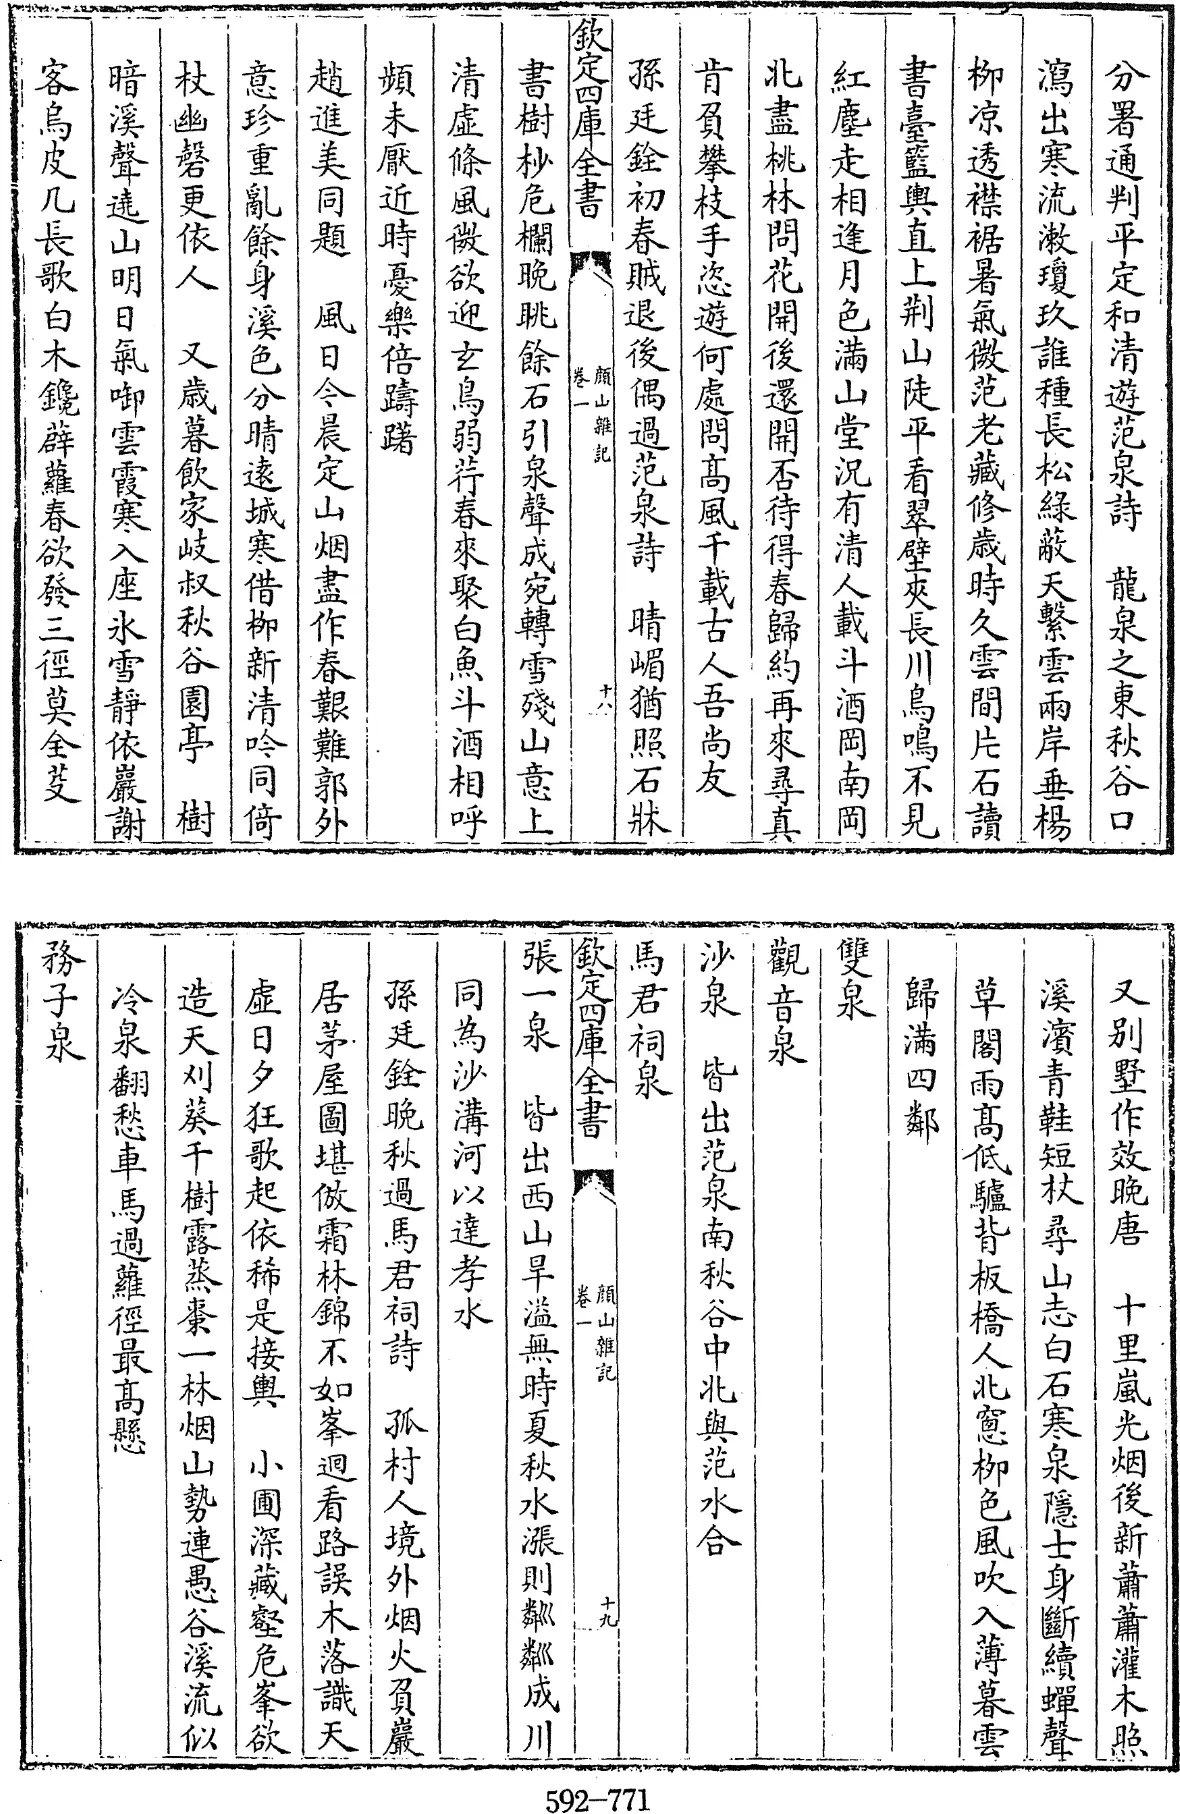 分署通判平定和清遊范泉詩　龍泉之東秋谷口
瀉出寒流漱瓊玖誰種長松綠蔽天繫雲兩岸垂楊
柳凉透襟裾暑氣微范老藏修歲時久雲間片石讀
書臺籃輿直上荆山陡平看翠壁夾長川鳥鳴不見
紅塵走相逢月色滿山堂況有清人載斗酒岡南岡
北盡桃林問花開後還開否待得春歸約再來尋真
肯負攀枝手恣遊何處問髙風千載古人吾尚友
孫廷銓初春賊退後偶過范泉詩　晴嵋猶照石牀
欽定四庫全書
顔山雜記
卷一
十八
書樹杪危欄晚眺餘石引泉聲成宛轉雪殘山意上
清虛條風微欲迎玄鳥弱荇春來聚白魚斗酒相呼
頻未厭近時憂樂倍躊躇
趙進美同題　風日今晨定山烟盡作春艱難郭外
意珍重亂餘身溪色分晴遠城寒借柳新清吟同倚
杖幽磬更依人　又歲暮飲家岐叔秋谷園亭　樹
暗溪聲遶山明日氣啣雲霞寒入座氷雪靜依巖謝
客烏皮几長歌白木鑱薜蘿春欲發三徑莫全芟
又别墅作效晚唐　十里嵐光烟後新蕭蕭灌木照
溪濱青鞋短杖尋山志白石寒泉隱士身斷續蟬聲
草閣雨髙低驢背板橋人北窻柳色風吹入薄暮雲
歸滿四鄰
雙泉
觀音泉
沙泉　皆出范泉南秋谷中北與范水合
馬君祠泉
欽定四庫全書
顔山雜記
卷一
十九
張一泉　皆出西山旱溢無時夏秋水漲則粼粼成川
同為沙溝河以達孝水
孫廷銓晚秋過馬君祠詩　孤村人境外烟火負巖
居茅屋圖堪倣霜林錦不如峯迴看路誤木落識天
虛日夕狂歌起依稀是接輿　小圃深藏壑危峯欲
造天刈葵千樹露蒸棗一林烟山勢連愚谷溪流似
冷泉翻愁車馬過蘿徑最髙懸
務子泉
592-771